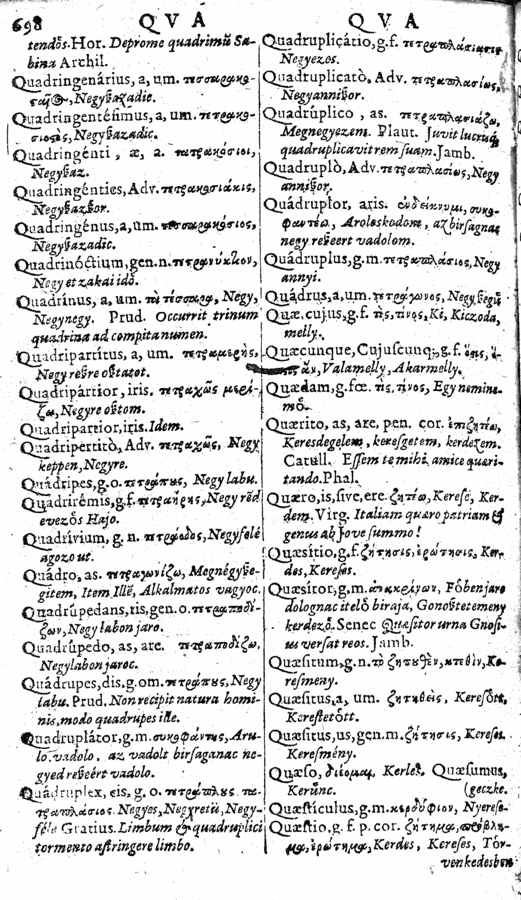 698 QVA QVA
tendôs. Hor. Deprome quadrimũ Sa-
bina Archil.
Quadringenárius, a, um.
Negyßazadic.
Quadringentésimus, a, um.
Negyßazadic.
Quadringénti, æ, a. τετρακόσιοι,
Negyßaz.
Quadringénties, Adv. τετρακοσιάκις,
Negyßazßor.
Quadringénus, a, um.
Negyßazadic.
Quadrinóctium, gen. n. τετρανύκτιον,
Negy etzakai idô.
Quadrínus, a, um. Negy,
Negynegy. Prud. Occurrit trinum
quadrina ad compita numen.
Quadripartítus, a, um. τετραμερὴς,
Negy reßre oßtatot.
Quadripártior, iris. τετραχῶς μερί-
ζω, Negyre oßtom.
Quadripartior, iris. Idem.
Quadripertitò, Adv. τετραχῶς, Negy
keppen, Negyre.
Quádripes, g.o. τετράπους, Negy labu.
Quadrirémis, g.f. τετρήρης, Negy rẽd
evezôs Hajo.
Quadrívium, g. n. Negyfelé
agozo ut.
Quádro, as. τετραγωνίζω, Megnégyße-
gitem, Item Illê, Alkalmatos vagyoc.
Quadrûpedans, tis, gen. o. τετραποδί-
ζων, Negy labon jaro.
Quadrûpedo, as, are. τετραποδίζω,
Negylabon jaroc.
Quádrupes, dis, g. om. τετράπους, Negy
labu. Prud. Non recipit natura homi-
nis, modo quadrupes ille.
Quadruplátor, g.m. συκοφάντης, Aru-
lo. vadolo, az vadolt birsaganac ne-
gyed reßeért vadolo.
Quádruplex, cis, g. o. τετραπλοῦς τε-
τραπλάσιος. Negyes, Negyretû, Negy-
féle Gratius. Limbum & quadruplici
tormento astringere limbo.
Quadruplicátio, g.f.
Negyezes.
Quadruplicatò, Adv. τετραπλασίως,
Negyannißor.
Quadrûplico, as. τετραπλασιάζω,
Megnegyezem. Plaut. Juvit lucrisq;
quadruplicavit rem suam. Jamb.
Quadruplò, Adv. τετραπλασίως, Negy
annißor.
Quádruptor, aris. ἐνδείκνυμι, συκο-
φαντέω, Aroleskodom, az birsagnac
negy reßeert vadolom.
Quádruplus, g.m. τετραπλάσιος, Negy
annyi.
Quádrus, a, um. τετράγωνος, Negyßegû
Quæ, cujus, g.f. τὶς, τίνος, Ki, Kiczoda,
melly.
Quæcunque, Cujuscunq;, g.f.
Valamelly, Akarmelly.
Quædam, g. fœ. τὶς, τινος, Egy nemine-
mô.
Quærito, as, are, pen. cor. ἐπιζητέω,
Keresdegelem, keresgetem, kerdezem.
Catull. Essem te mihi amice quæri-
tando. Phal.
Quæro, is, sive, ere. ζητέω, Keresé, Ker-
dem. Virg. Italiam quæro patriam &
genus ab Jove summo!
Quæsítio, g.f. ζήτησις, ἐρώτησις, Ker-
des, Kereses.
Quæsítor, g.m. ἀνακρίνων, Fôbenjaro
dolognac itelô biraja, Gonoßtetemeny
kerdezô. Senec Quæsitor urna Gnosi-
us versat reos. Jamb.
Quæsítum, g.n. τὸ ζητηθὲν, Ke-
resmeny.
Quæsítus, a, um. ζητηθεὶς, Keresôtt,
Kerestetôtt.
Quæsítus, us, gen. m. ζήτησις, Kereses.
Keresmény.
Quæso, δέομαι. Kerlek. Quæsumus,
Kerûnc. (geczke.
Quæstículus, g.m. κερδύφιον, Nyerese-
Quæstio, g. f. p. cor. ζήτημα, πρόβλη-
μα, ἐρώτημα, Kerdes, Kereses, Tôr-
venkedesben